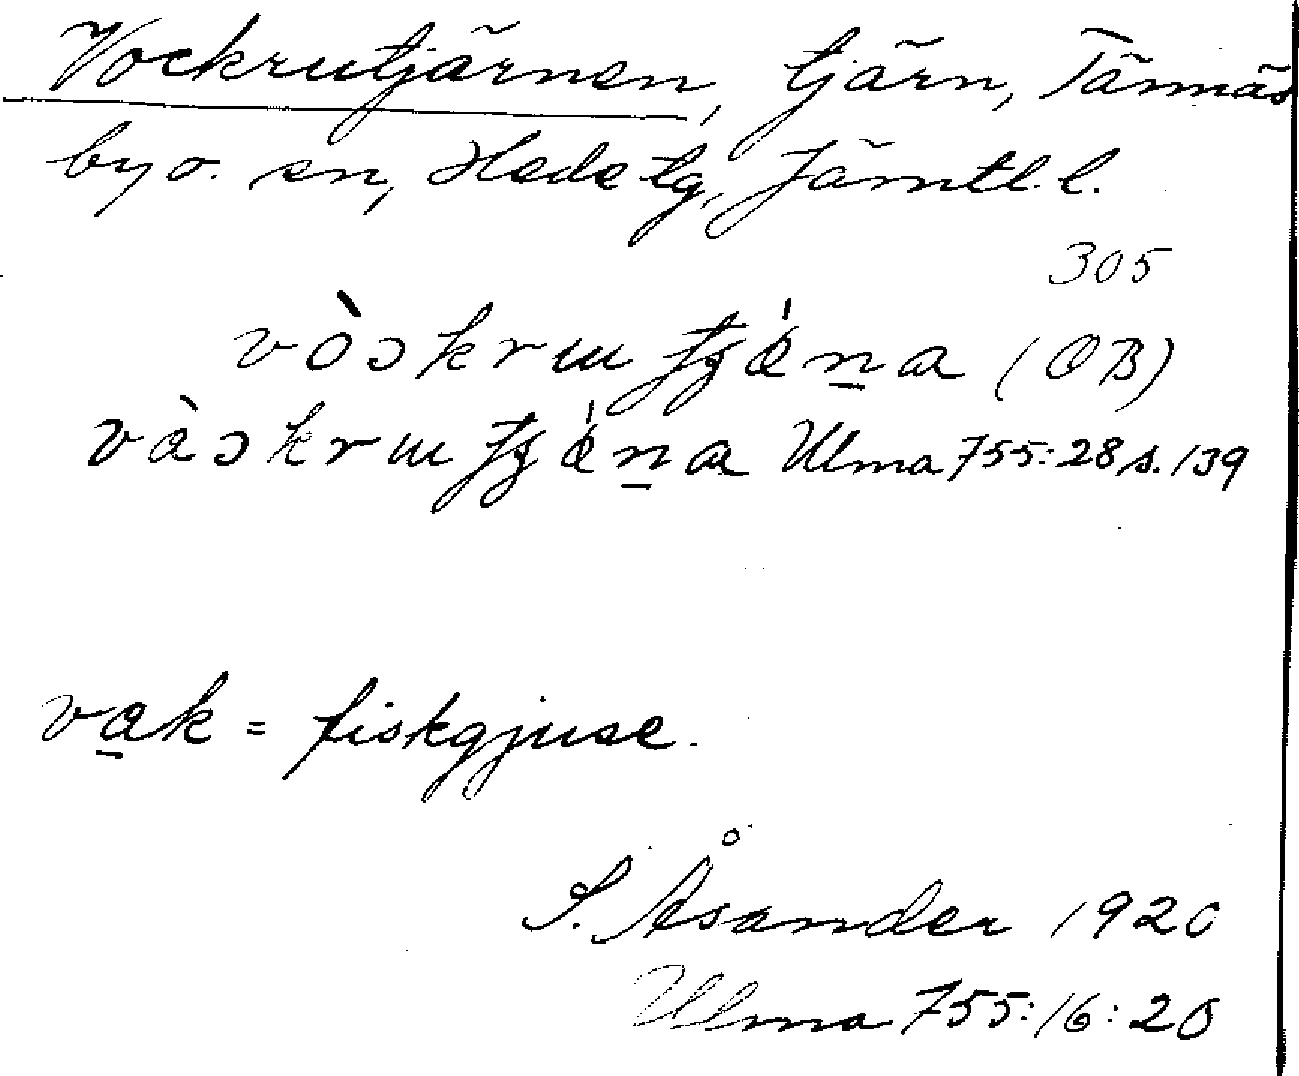 Vockrutjärnen, tjärn, Tännäs
by o. sn, Hede tg, Jämtl. l.
305
vòɔkrɯ tjǽn̠a (OB)
vàɔkrɯ tjǽn̠a Ulma 755:28 s. 139
va̠k = fiskgjuse.
S. Åsander 1920
Ulma 755:16:20